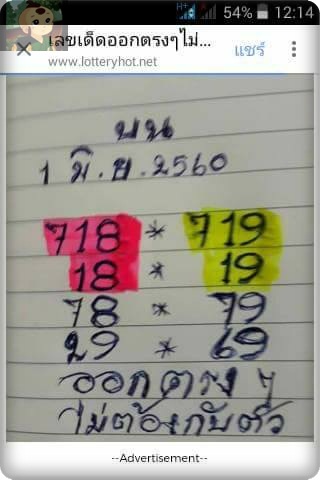 54% 12:14
เลขเด็ดออกตรงๆไม่...
www.lotteryhot.net
แชร์
บน
1 มิ.ย.2560
718 * 719
18 * 19
78 * 79
29 * 69
ออกตรง ๆ
ไม่ต้องกลับตัว
--Advertisement--